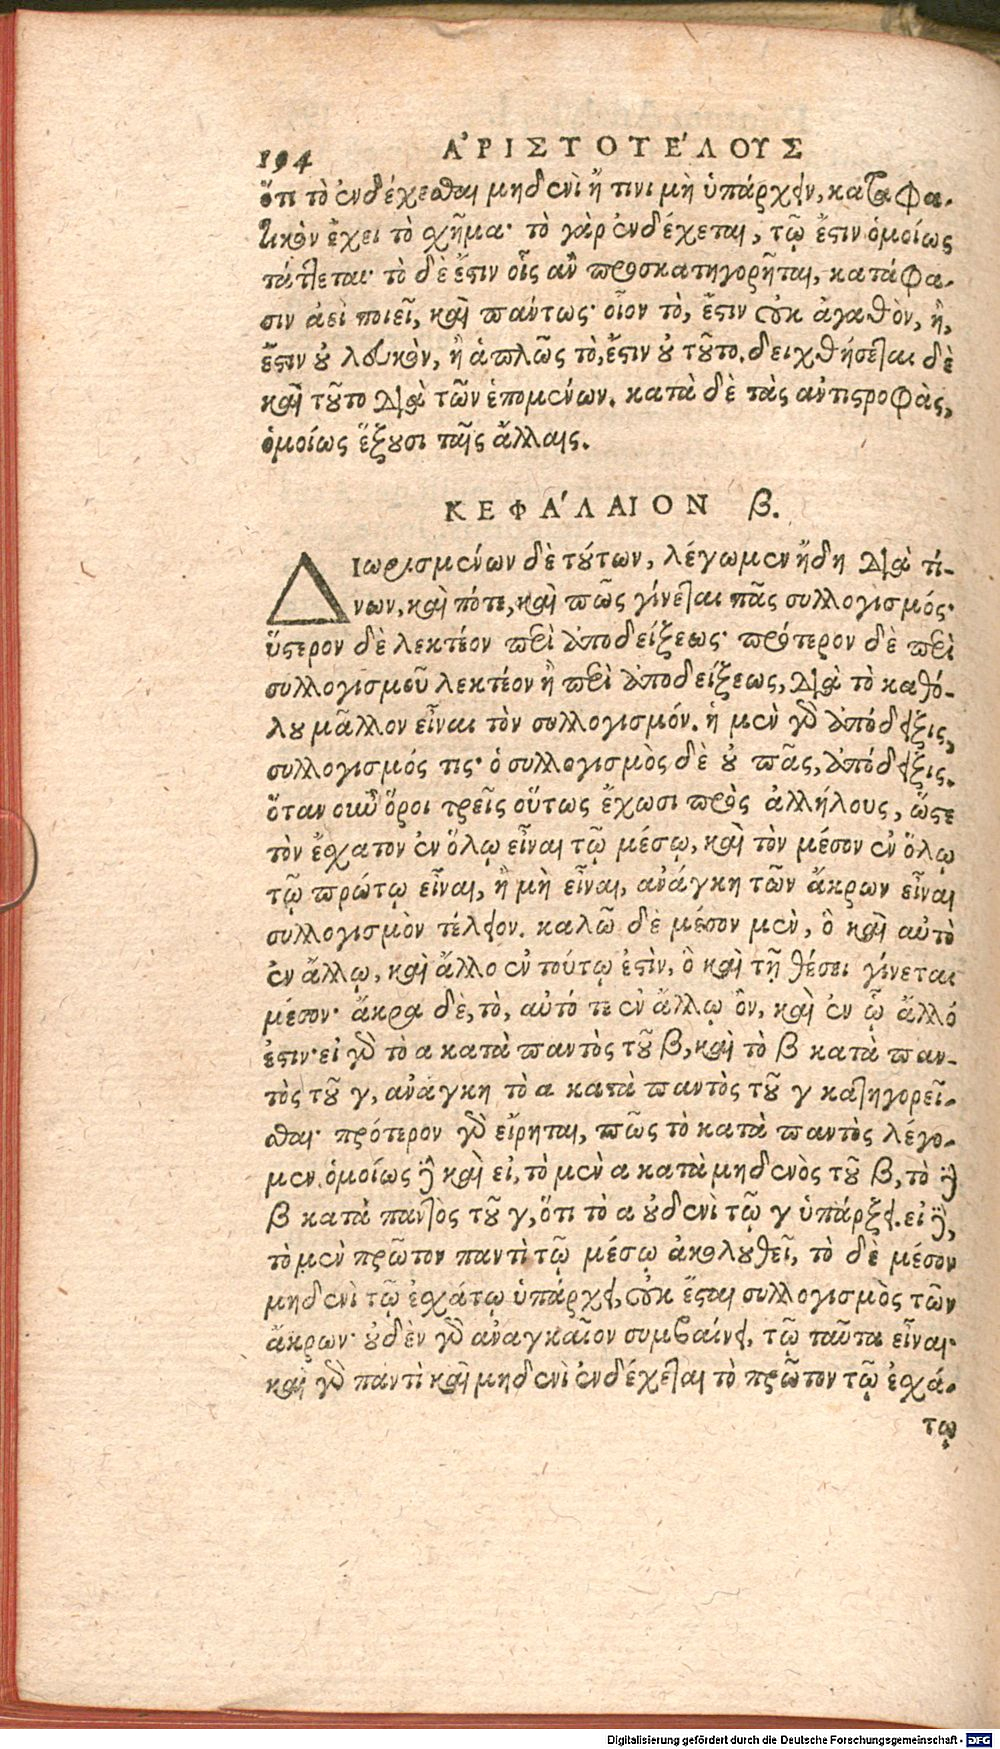 194 ἈΡΙΣΤΟΤΕ´ΛΟΥΣ
ὅτι τὸ ἐνδέχεσθαι μηδενὶ ἤ τινι μὴ ὑπάρχειν, καταφα-
τικὸν ἔχει τὸ σχῆμα· τὸ γὰρ ἐνδέχεται, τῷ ἔστιν ὁμοίως
τάττεται· τὸ δὲ ἔστιν οἷς ἂν προσκατηγορῆται, κατάφα-
σιν ἀεὶ ποιεῖ, καὶ πάντως· οἷον τὸ, ἔστιν οὐκ ἀγαθὸν, ἢ,
ἔστιν οὐ λευκὸν, ἢ ἁπλῶς τὸ, ἔστιν οὐ τοῦτο. δειχθήσεται δὲ
καὶ τοῦτο διὰ τῶν ἑπομένων. κατὰ δὲ τὰς ἀντιστροφὰς,
ὁμοίως ἕξουσι ταῖς ἄλλαις.
ΚΕΦΑ´ΛΑΙΟΝ β.
Διωρισμένων δὲ τούτων, λέγωμεν ἤδη διὰ τί-
νων, καὶ πότε, καὶ πῶς γίνεται πᾶς συλλογισμός·
ὕστερον δὲ λεκτέον περὶ ἀποδείξεως· πρότερον δὲ περὶ
συλλογισμοῦ λεκτέον ἢ περὶ ἀποδείξεως, διὰ τὸ καθό-
λου μᾶλλον εἶναι τὸν συλλογισμόν. ἡ μὲν γὰρ ἀπόδειξις,
συλλογισμός τις· ὁ συλλογισμὸς δὲ οὐ πᾶς, ἀπόδειξις.
ὅταν οὖν ὅροι τρεῖς οὕτως ἔχωσι πρὸς ἀλλήλους, ὥστε
τὸν ἔσχατον ἐν ὅλῳ εἶναι τῷ μέσῳ, καὶ τὸν μέσον ἐν ὅλῳ
τῷ πρώτῳ εἶναι, ἢ μὴ εἶναι, ἀνάγκη τῶν ἄκρων εἶναι
συλλογισμὸν τέλειον. καλῶ δὲ μέσον μὲν, ὃ καὶ αὐτὸ
ἐν ἄλλῳ, καὶ ἄλλο ἐν τούτῳ ἐστὶν, ὃ καὶ τῇ θέσει γίνεται
μέσον· ἄκρα δὲ, τὸ, αὐτό τε ἐν ἄλλῳ ὂν, καὶ ἐν ᾧ ἄλλό
ἐστιν· εἰ γὰρ τὸ α κατὰ παντὸς τοῦ β, καὶ τὸ β κατὰ παν-
τὸς τοῦ γ, ἀνάγκη τὸ α κατὰ παντὸς τοῦ γ κατηγορεῖ-
σθαι· πρότερον γὰρ εἴρηται, πῶς τὸ κατὰ παντὸς λέγο-
μεν. ὁμοίως δὲ καὶ εἰ, τὸ μὲν α κατὰ μηδενὸς τοῦ β, τὸ δὲ
β κατὰ παντὸς τοῦ γ, ὅτι τὸ α οὐδενὶ τῷ γ ὑπάρξει. εἰ δὲ,
τὸ μὲν πρῶτον παντὶ τῷ μέσῳ ἀκολουθεῖ, τὸ δὲ μέσον
μηδενὶ τῷ ἐσχάτῳ ὑπάρχει, οὐκ ἔσται συλλογισμὸς τῶν
ἄκρων· οὐδὲν γὰρ ἀναγκαῖον συμβαίνει, τῷ ταῦτα εἶναι·
καὶ γὰρ παντὶ καὶ μηδενὶ ἐνδέχεται τὸ πρῶτον τῷ ἐσχά-
τῳ
Digitalisierung gefördert durch die Deutsche Forschungsgemeinschaft - DFG